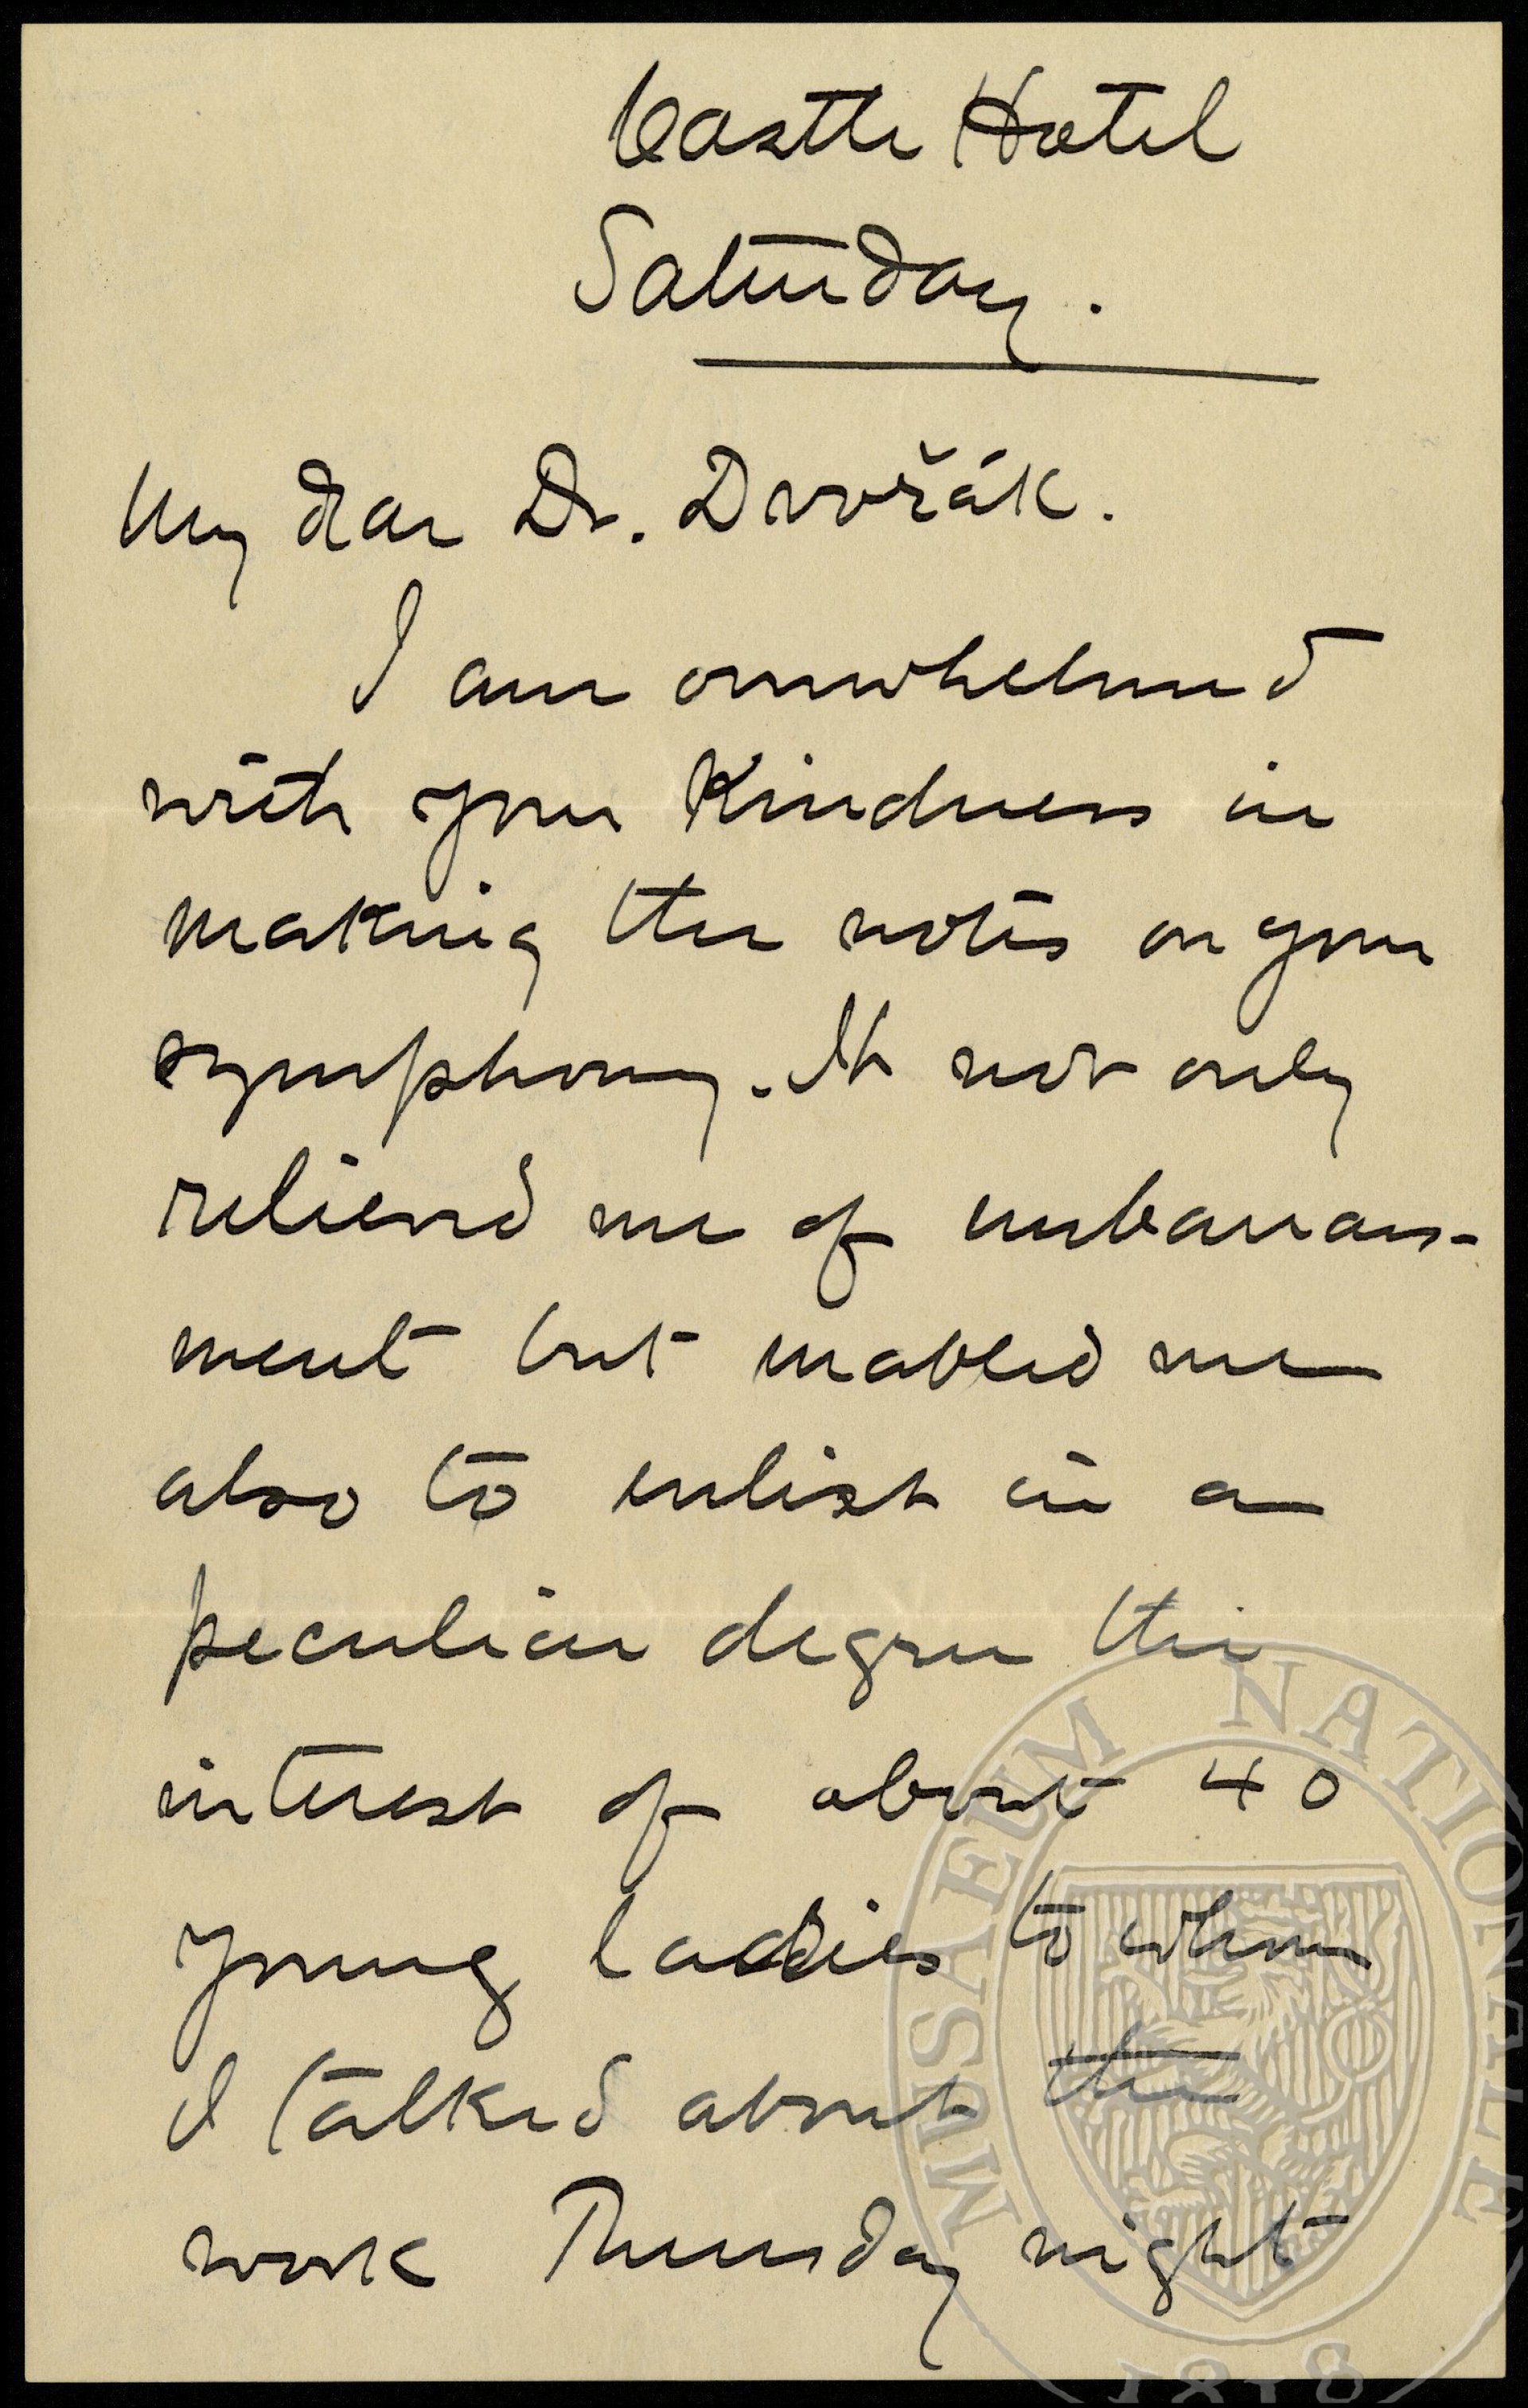 Castle Hotel
Saturday.
My dear Dr. Dvořák.
I am overwhelmed
with your kindness in
making the notes on your
symphony. It not only
relieved me of embarrass-
ment but enabled me
also to enlist in a
peculiar degree the
interest of about 40
young ladies to whom
I talked about the
work Thursday night
MUSAEUM NATIONALE
1818